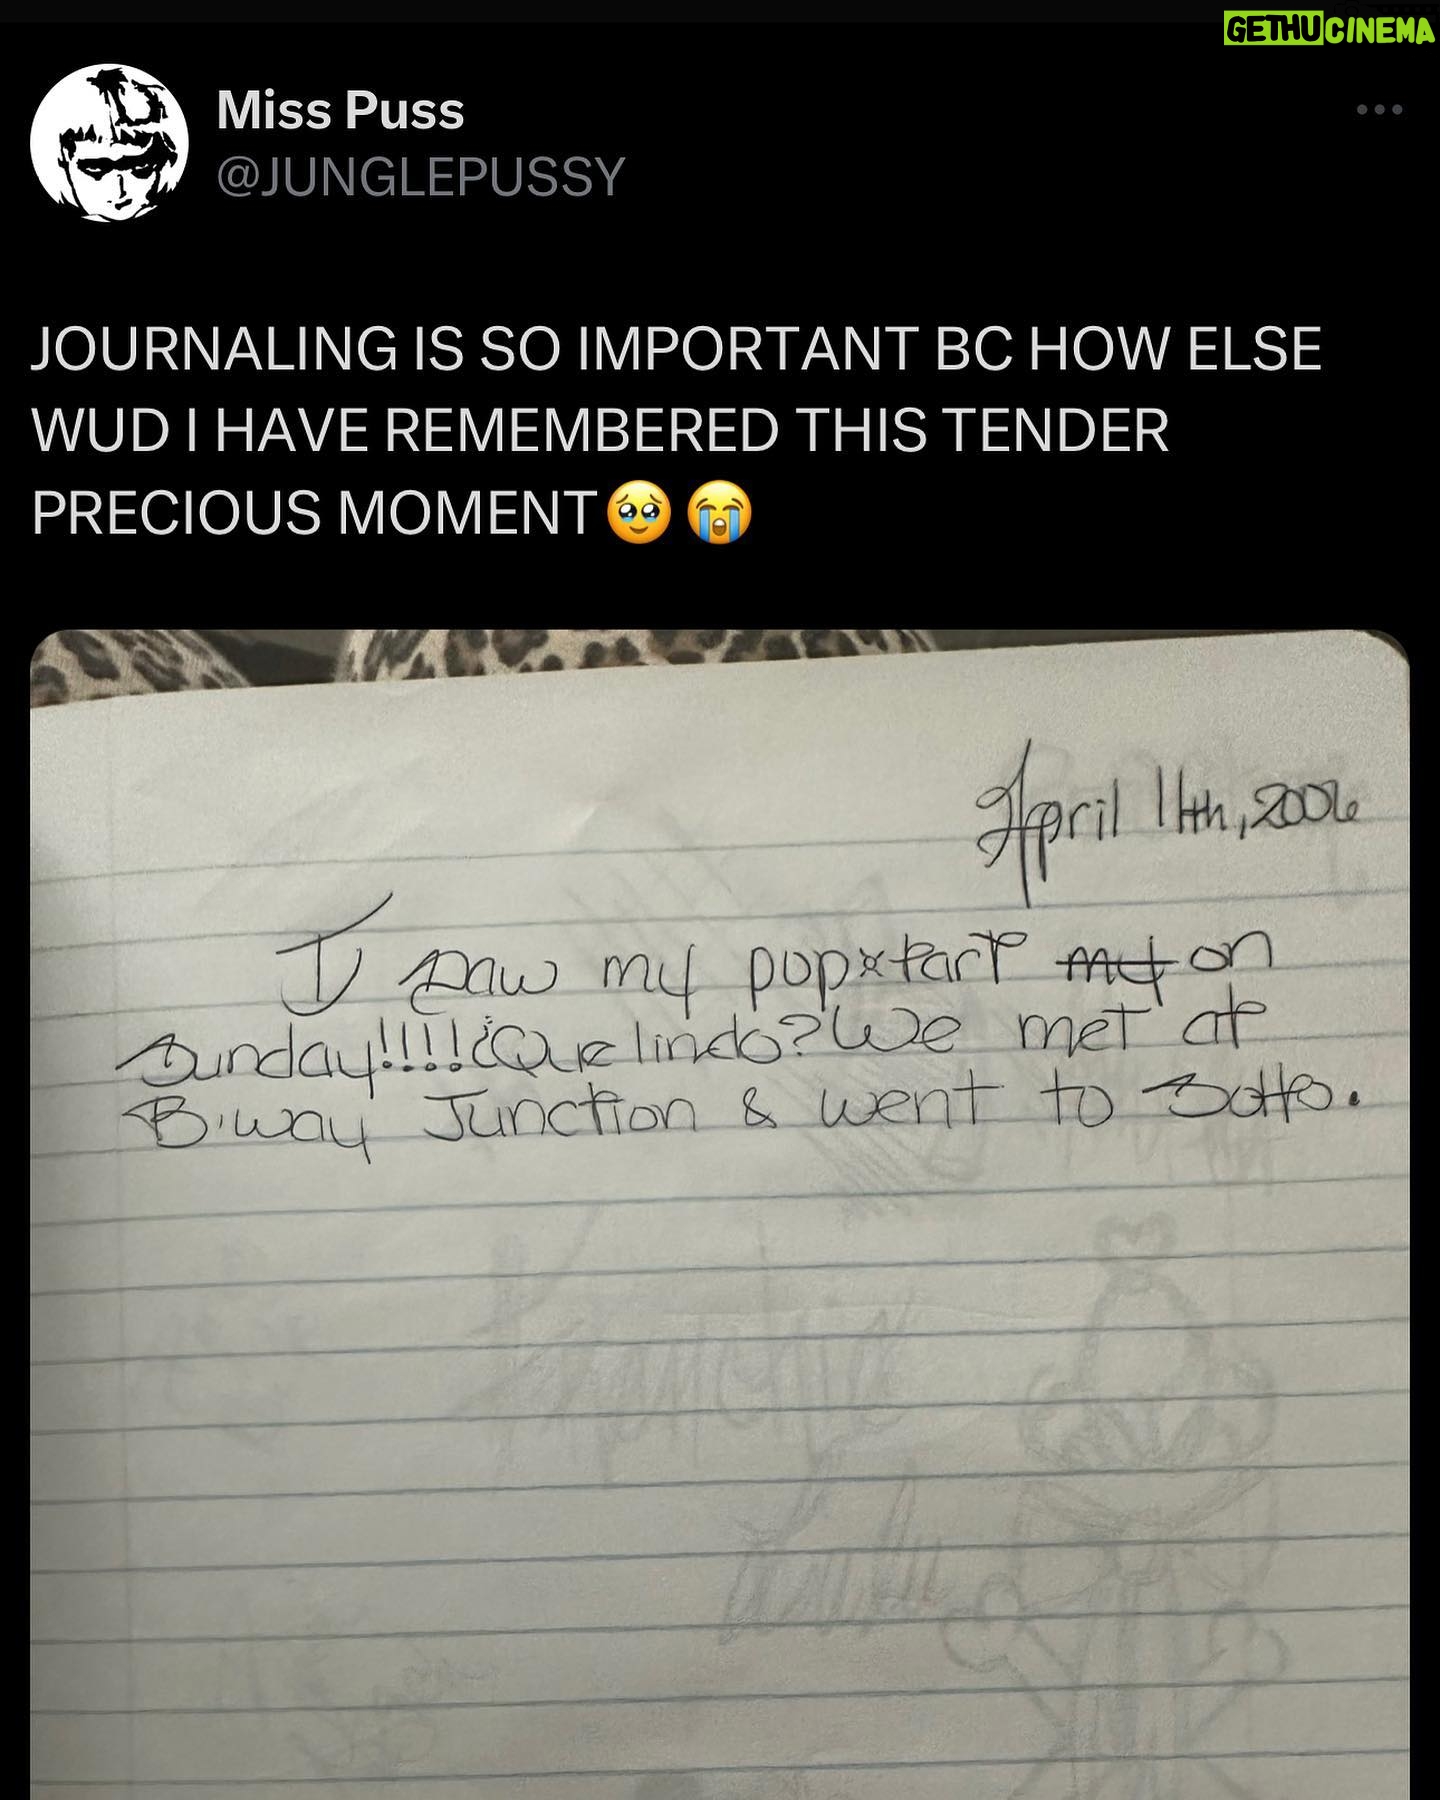 GETHUCINEMA
Miss Puss
@JUNGLEPUSSY
JOURNALING IS SO IMPORTANT BC HOW ELSE
WUD I HAVE REMEMBERED THIS TENDER
PRECIOUS MOMENT🥹😭
April 11th, 2006
I saw my pop¤tart my on
Sunday!!!!¿Que lindo? We met at
B'way Junction & went to SoHo.